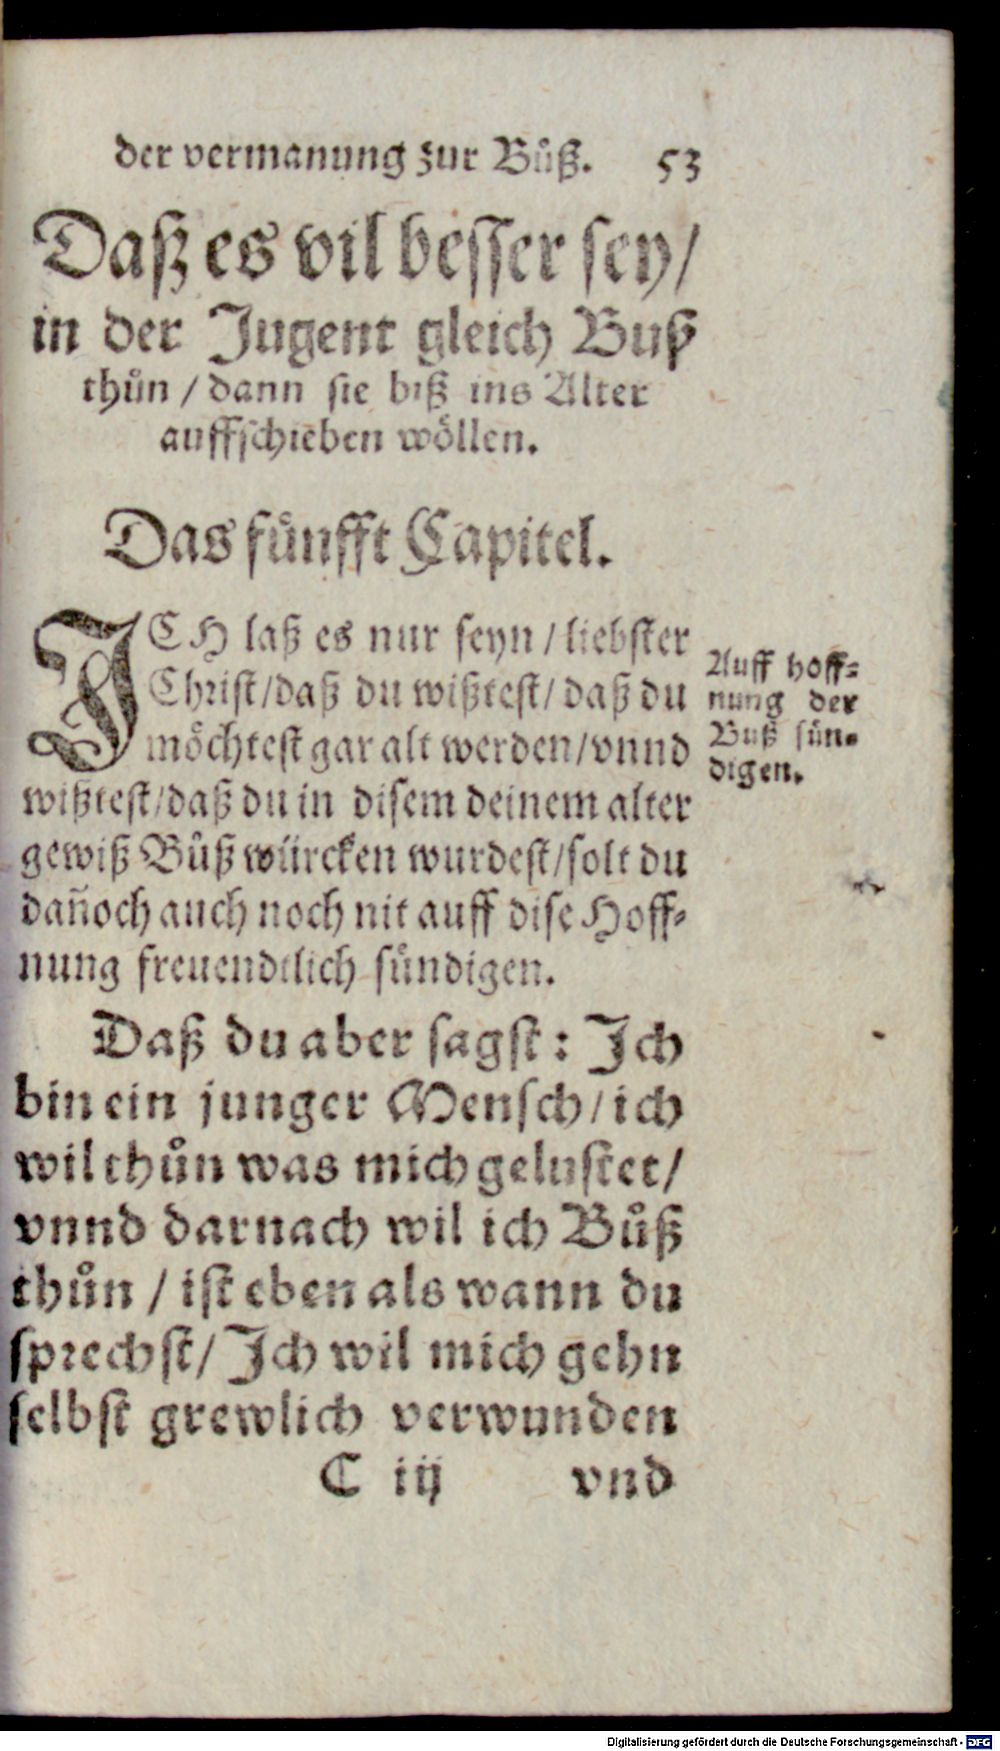 der vermanung zur Bůß. 53
Daß es vil besser sey/
in der Jugent gleich Buß
thůn / dann sie biß ins Alter
auffschieben wöllen.
Das fünfft Capitel.
JCH laß es nur seyn / liebster
Christ/daß du wißtest/ daß du
möchtest gar alt werden/vnnd
wißtest/daß du in disem deinem alter
gewiß Bůß würcken wurdest/solt du
dañoch auch noch nit auff dise Hoff-
nung freuendtlich sündigen.
Auff hoff-
nung der
Buß sün-
digen.
Daß du aber sagst: Jch
bin ein junger Mensch/ ich
wil thůn was mich gelustet/
vnnd darnach wil ich Bůß
thůn / ist eben als wann du
sprechst/ Jch wil mich gehn
selbst grewlich verwunden
C iij vnd
Digitalisierung gefördert durch die Deutsche Forschungsgemeinschaft - DFG